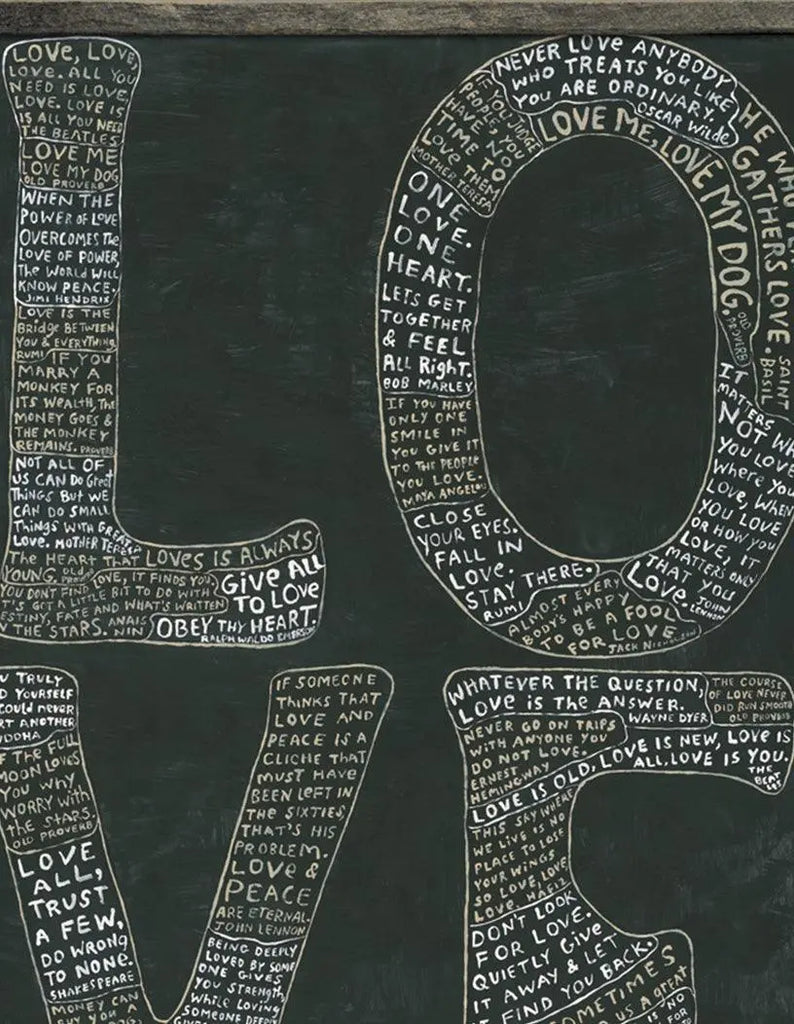 LOVE, LOVE,
LOVE. ALL YOU
NEED IS LOVE,
LOVE. LOVE IS
IS ALL YOU NEED
THE BEATLES
LOVE ME
LOVE MY DOG
OLD PROVERB
WHEN THE
POWER OF LOVE
OVERCOMES THE
LOVE OF POWER,
THE WORLD WILL
KNOW PEACE.
JIMI HENDRIX
LOVE IS THE
BRIDGE BETWEEN
YOU & EVERYTHING
RUMI
IF YOU
MARRY A
MONKEY FOR
ITS WEALTH, THE
MONEY GOES &
THE MONKEY
REMAINS. PROVERB
NOT ALL OF
US CAN DO GREAT
THINGS BUT WE
CAN DO SMALL
THINGS WITH GREAT
LOVE. MOTHER TERESA
THE HEART THAT LOVES IS ALWAYS
YOUNG. OLD PROVERB
YOU DON'T FIND LOVE, IT FINDS YOU.
IT'S GOT A LITTLE BIT TO DO WITH
DESTINY, FATE AND WHAT'S WRITTEN
IN THE STARS. ANAIS NIN
GIVE ALL
TO LOVE
OBEY THY HEART.
RALPH WALDO EMERSON
IF YOU JUDGE
PEOPLE, YOU
HAVE NO
TIME TO
LOVE THEM
MOTHER TERESA
NEVER LOVE ANYBODY
WHO TREATS YOU LIKE
YOU ARE ORDINARY.
OSCAR WILDE
LOVE ME, LOVE MY DOG.
OLD PROVERB
HE WHO
GATHERS LOVE.
SAINT BASIL
ONE
LOVE.
ONE
HEART.
LETS GET
TOGETHER
& FEEL
ALL RIGHT.
BOB MARLEY
IF YOU HAVE
ONLY ONE
SMILE IN
YOU GIVE IT
TO THE PEOPLE
YOU LOVE.
MAYA ANGELOU
CLOSE
YOUR EYES.
FALL IN
LOVE.
STAY THERE.
RUMI
IT
MATTERS
NOT WH
YOU LOVE
WHERE YOU
LOVE, WHEN
YOU LOVE
OR HOW YOU
LOVE, IT
MATTERS ONLY
THAT YOU
LOVE. JOHN
LENNON
ALMOST EVERY
BODY'S HAPPY
TO BE A FOOL
FOR LOVE
JACK NICHOLSON
U TRULY
D YOURSELF
COULD NEVER
RT ANOTHER
UDDHA
F THE FULL
MOON LOVES
YOU WHY
WORRY WITH
THE STARS.
OLD PROVERB
LOVE
ALL,
TRUST
A FEW,
DO WRONG
TO NONE.
SHAKESPEARE
MONEY CAN
BUY YOU A
IF SOMEONE
THINKS THAT
LOVE AND
PEACE IS A
CLICHE THAT
MUST HAVE
BEEN LEFT IN
THE SIXTIES,
THAT'S HIS
PROBLEM.
LOVE &
PEACE
ARE ETERNAL.
JOHN LENNON
BEING DEEPLY
LOVED BY SOME
ONE GIVES
YOU STRENGTH,
WHILE LOVING
SOMEONE DEEPLY
WHATEVER THE QUESTION,
LOVE IS THE ANSWER.
WAYNE DYER
THE COURSE
OF LOVE NEVER
DID RUN SMOOTH
OLD PROVERB
NEVER GO ON TRIPS
WITH ANYONE YOU
DO NOT LOVE.
ERNEST
HEMINGWAY
LOVE IS OLD, LOVE IS NEW, LOVE IS
ALL, LOVE IS YOU.
THE
BEAT
LES
THIS SKY WHERE
WE LIVE IS NO
PLACE TO LOSE
YOUR WINGS
SO LOVE, LOVE,
LOVE. HAFIZ
DON'T LOOK
FOR LOVE.
QUIETLY GIVE
IT AWAY & LET
IT FIND YOU BACK.
SOMETIMES
US A GREAT
IS NO
FOR